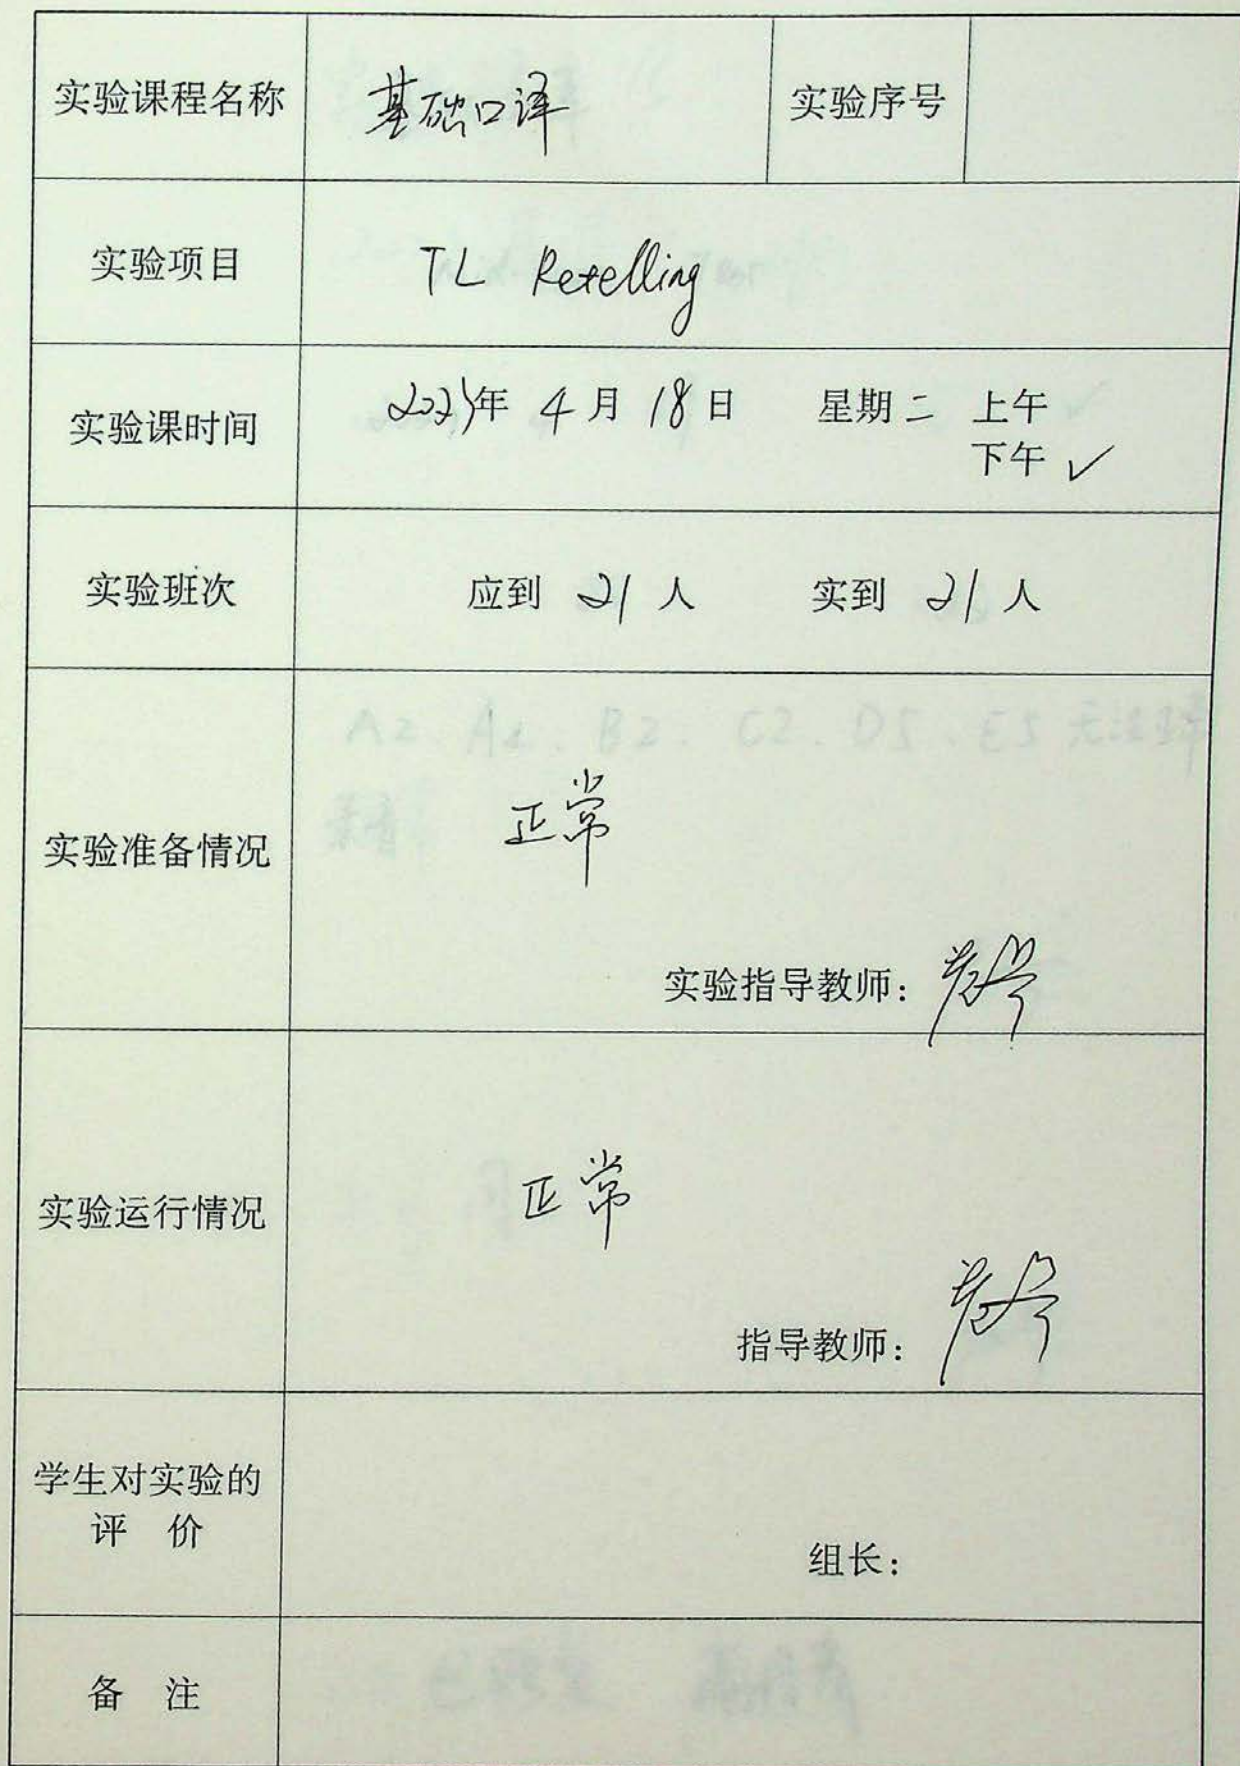 实验课程名称 基础口译 实验序号
实验项目 TL Retelling
实验课时间 2023年 4月 18日 星期二 上午
下午 ✓
实验班次 应到 21 人 实到 21 人
实验准备情况 正常
实验指导教师:
实验运行情况 正常
指导教师:
学生对实验的
评 价
组长:
备 注